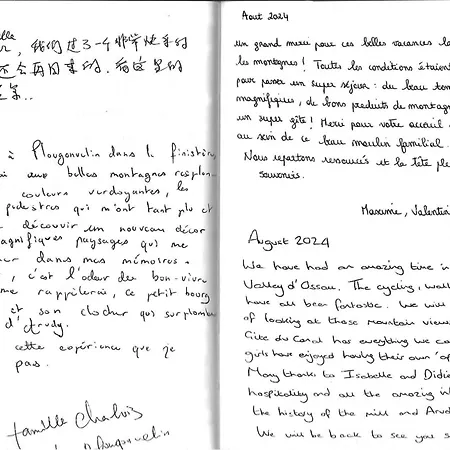 我们过了一个非常快乐的
还会再回来的. 和这里的
à Plougonvelin dans le finistère,
aux belles montagnes resplen-
couleurs verdoyantes, les
pédestres qui m'ont tant plu et
découvrir un nouveau décor
magnifiques paysages qui me
dans mes mémoires.
, c'est l'odeur des bon-vivre
me rappèlerai, ce petit bourg
et son clocher qui surplombe
d'Arudy.
cette expérience que je
pas.
famille Chalois
Plougonvelin
Août 2024
un grand merci pour ces belles vacances
les montagnes! Toutes les conditions étaient
pour passer un super séjour: du beau tem
magnifiques, de bons produits de montagn
un super gîte! Merci pour votre accueil
au sein de ce beau moulin familial.
Nous repartons ressourcés et la tête ple
souvenirs.
Maxime, Valentin
August 2024
We have had an amazing time in
Valley d'Ossau. The cycling, wal
have all been fantastic. We will
of looking at those mountain views
Gite du Canal has everything we co
girls have enjoyed having their own 'ap
Many thanks to Isabelle and Didie
hospitality and all the amazing in
the history of the mill and Arud
We will be back to see you s